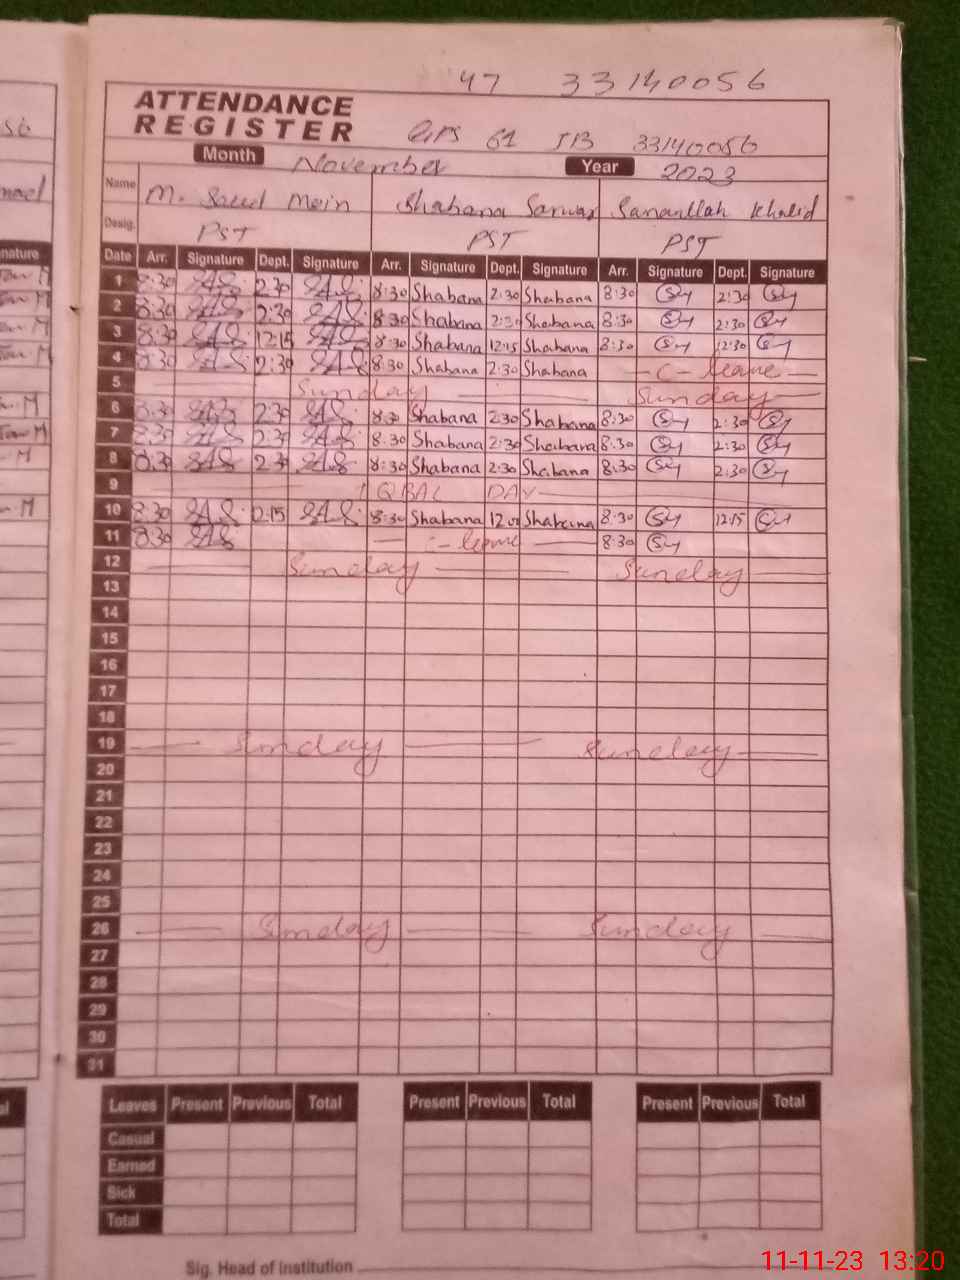 47 33140056
ATTENDANCE
REGISTER
GPS 61 JB 33140056
Month November Year 2023
Name M. Saeed Mein Shabana Sarwar Sanaullah Khalid
Desig. PST PST PST
Date Arr. Signature Dept. Signature Arr. Signature Dept. Signature Arr. Signature Dept. Signature
1 8:30 2:30 8:30 Shabana 2:30 Shabana 8:30 2:30
2 8:30 2:30 8:30 Shabana 2:30 Shabana 8:30 2:30
3 8:30 12:15 8:30 Shabana 12:15 Shabana 8:30 12:30
4 8:30 2:30 8:30 Shabana 2:30 Shabana — C - leave —
5 Sunday Sunday
6 8:30 2:30 8:30 Shabana 2:30 Shabana 8:30 2:30
7 8:30 2:30 8:30 Shabana 2:30 Shabana 8:30 2:30
8 8:30 2:30 8:30 Shabana 2:30 Shabana 8:30 2:30
9 IQBAL DAY
10 8:30 12:15 8:30 Shabana Shabana 8:30 12:15
11 8:30 — C - leave — 8:30
12 Sunday Sunday
13
14
15
16
17
18
19 Sunday Sunday
20
21
22
23
24
25
26 Sunday Sunday
27
28
29
30
31
Leaves Present Previous Total Present Previous Total Present Previous Total
Casual
Earned
Sick
Total
Sig. Head of Institution
11-11-23 13:20